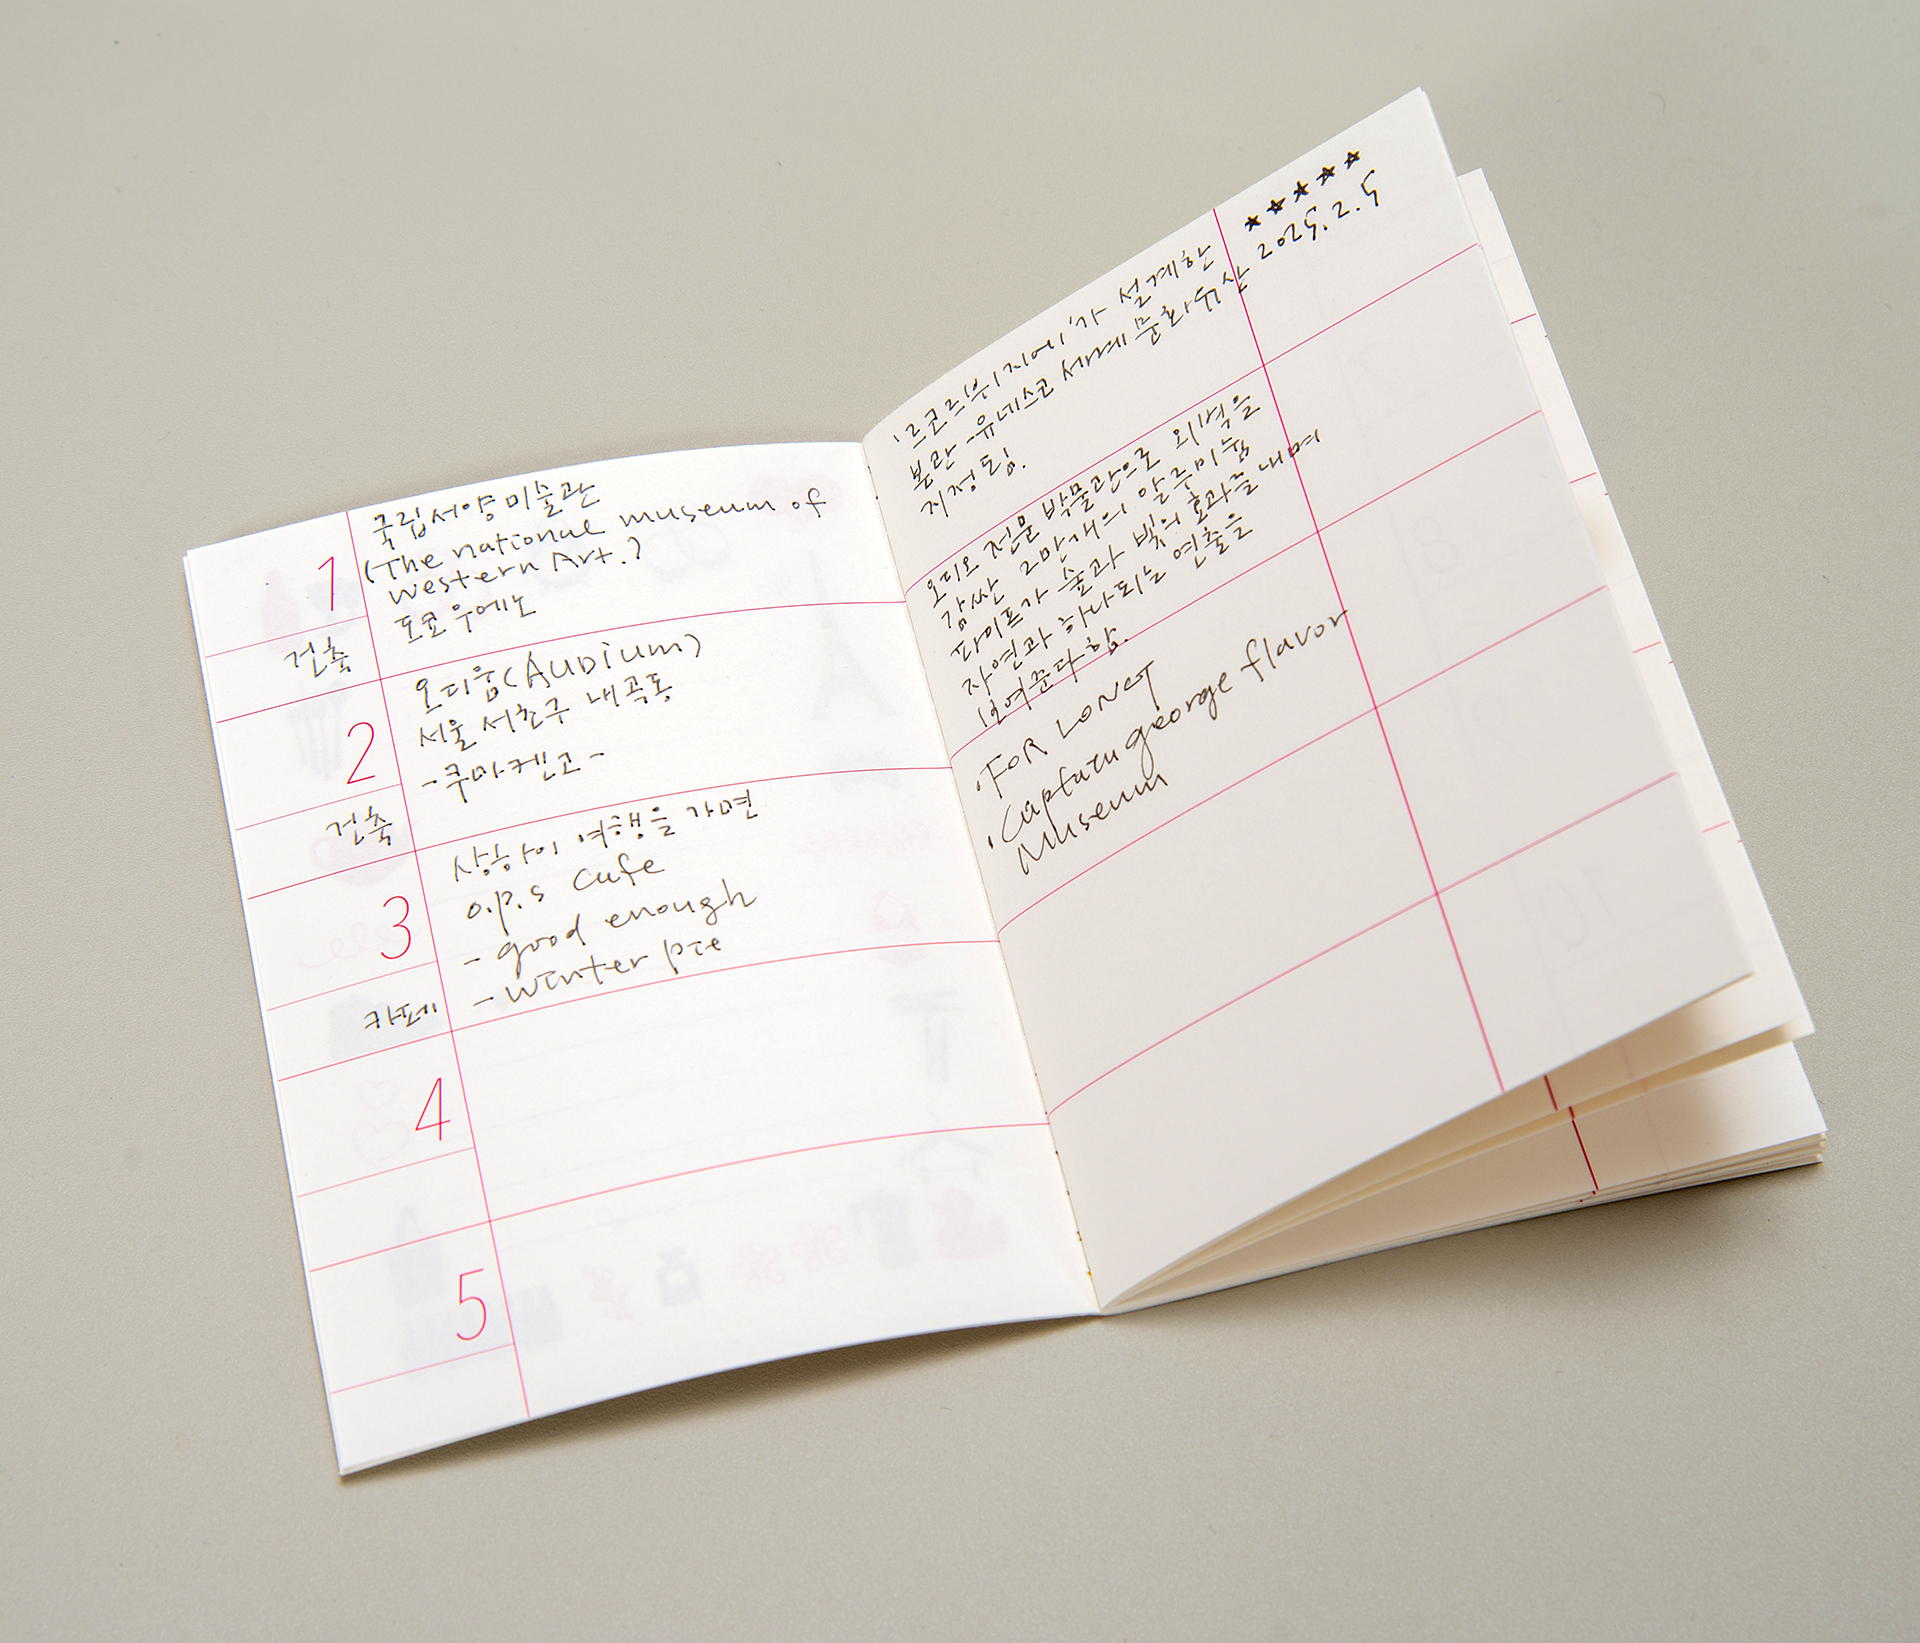 1
국립서양미술관
(The national museum of
western Art.)
도쿄 우에노
건축
2
오디움(AUDium)
서울 서초구 내곡동
-쿠마켄고-
건축
3
상하이 여행을 가면
o.p.s cafe
- good enough
- winter pie
카페
4
5
'르코르뷔지에'가 설계한
본관 - 유네스코 세계문화유산
지정됨.
★★★★★
2025.2.5
오디오 전문 박물관으로 외벽을
감싼 2만개의 알루미늄
파이프가 숲과 빛의 효과를 내며
자연과 하나되는 연출을
보여준다 함.
· FOR LONG
· Captain george flavor
Museum